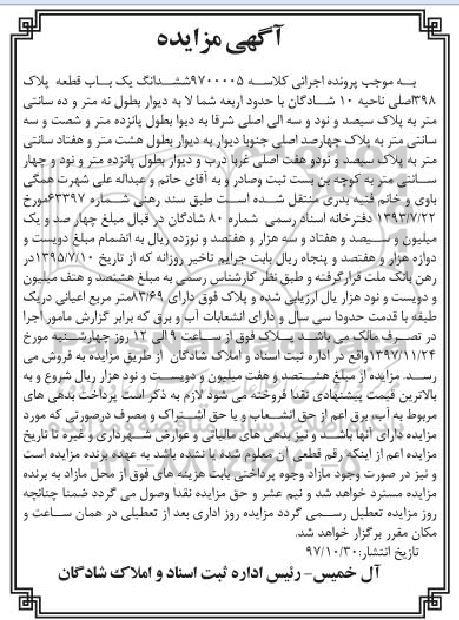 آگهی مزایده
به موجب پرونده اجرائی کلاسه ۹۷۰۰۰۰۵ ششدانگ یک باب قطعه پلاک
۳۹۸ اصلی ناحیه ۱۰ شادگان با حدود اربعه شما لا به دیوار بطول نه متر و ده سانتی
متر به پلاک سیصد و نود و سه الی اصلی شرقا به دیوا بطول پانزده متر و شصت و سه
سانتی متر به پلاک چهارصد اصلی جنوبا دیوار به دیوار بطول هشت متر و هفتاد سانتی
متر به پلاک سیصد و نودو هفت اصلی غربا درب و دیوار بطول پانزده متر و نود و چهار
سانتی متر به کوچه بن بست ثبت وصادر و به آقای حاتم و عبداله علی شهرت همگی
باوی و خانم فتیه بدری منتقل شده است طبق سند رهنی شماره ۶۳۳۹۷مورخ
۱۳۹۳/۷/۲۲ دفترخانه اسناد رسمی شماره ۸۰ شادگان در قبال مبلغ چهار صد و یک
میلیون و سیصد و هفتاد و سه هزار و هفتصد و نوزده ریال به انضمام مبلغ دویست و
دوازه هزار و هفتصد و پنجاه ریال بابت جرایم تاخیر روزانه که از تاریخ ۱۳۹۵/۷/۱۰در
رهن بانک ملت قرارگرفته و طبق نظر کارشناس رسمی به مبلغ هشتصد و هتف میلیون
و دویست و نود هزار یال ارزیابی شده و پلاک فوق دارای ۸۳/۶۹متر مربع اعیانی دریک
طبقه با قدمت حدودا سی سال و دارای انشعابات آب و برق که برابر گزارش مامور اجرا
در تصرف مالک می باشد پلاک فوق از ساعت ۹ الی ۱۲ روز چهارشنبه مورخ
۱۳۹۷/۱۱/۲۴واقع در اداره ثبت اسناد و املاک شادگان از طریق مزایده به فروش می
رسد. مزایده از مبلغ هشتصد و هفت میلیون و دویست و نود هزار ریال شروع و به
بالاترین قیمت پیشنهادی نقدا فروخته می شود لازم به ذکر است پرداخت بدهی های
مربوط به آب، برق اعم از حق انشعاب و یا حق اشتراک و مصرف درصورتی که مورد
مزایده دارای آنها باشد و نیز بدهی های مالیاتی و عوارض شهرداری و غیره تا تاریخ
مزایده اعم از اینکه رقم قطعی ان معلوم شده یا نشده باشد به عهده برنده مزایده است
و نیز در صورت وجود مازاد وجوه پرداختی بابت هزینه های فوق از محل مازاد به برنده
مزایده مسترد خواهد شد و نیم عشر و حق مزایده نقدا وصول می گردد ضمنا چنانچه
روز مزایده تعطیل رسمی گردد مزایده روز اداری بعد از تعطیلی در همان ساعت و
مکان مقرر برگزار خواهد شد.
تاریخ انتشار:۹۷/۱۰/۳۰
آل خمیس- رئیس اداره ثبت اسناد و املاک شادگان